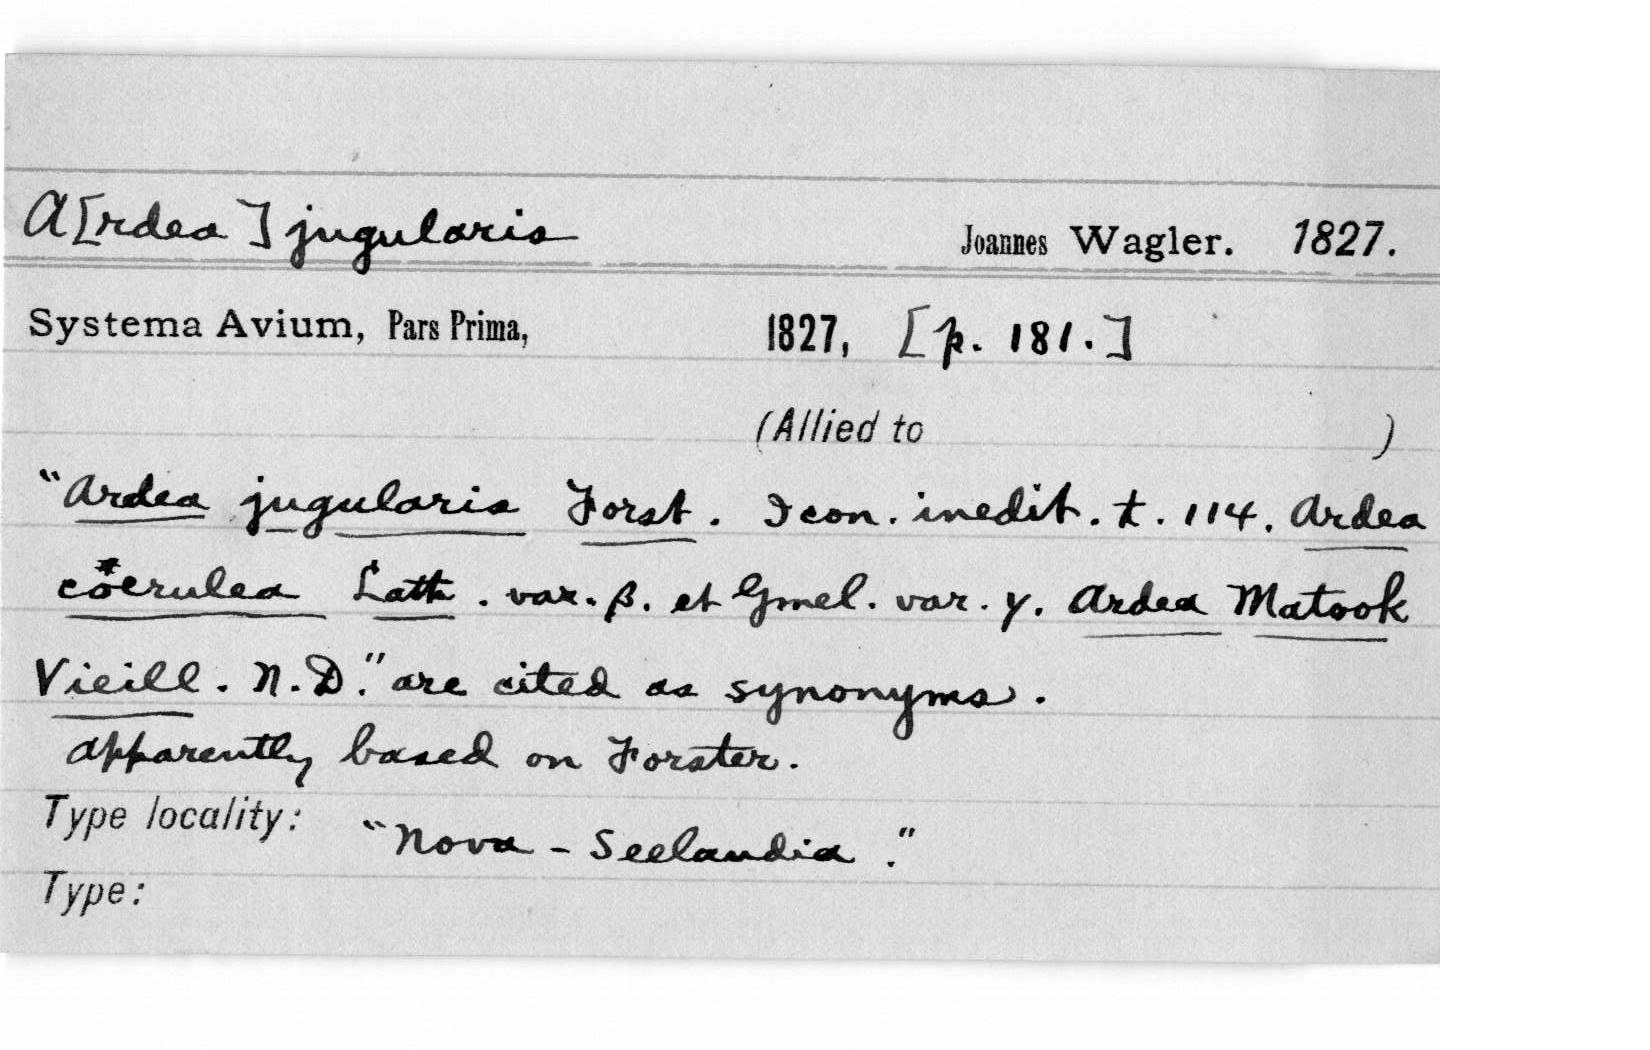 A[rdea] jugularis Joannes Wagler. 1827.
Systema Avium, Pars Prima, 1827, [p. 181.]
(Allied to )
"Ardea jugularis Forst. Icon. inedit. t. 114. Ardea
coerulea Lath. var. β. et Gmel. var. γ. Ardea Matook
Vieill. N.D." are cited as synonyms.
Apparently based on Forster.
Type locality: "Nova-Seelandia."
Type: